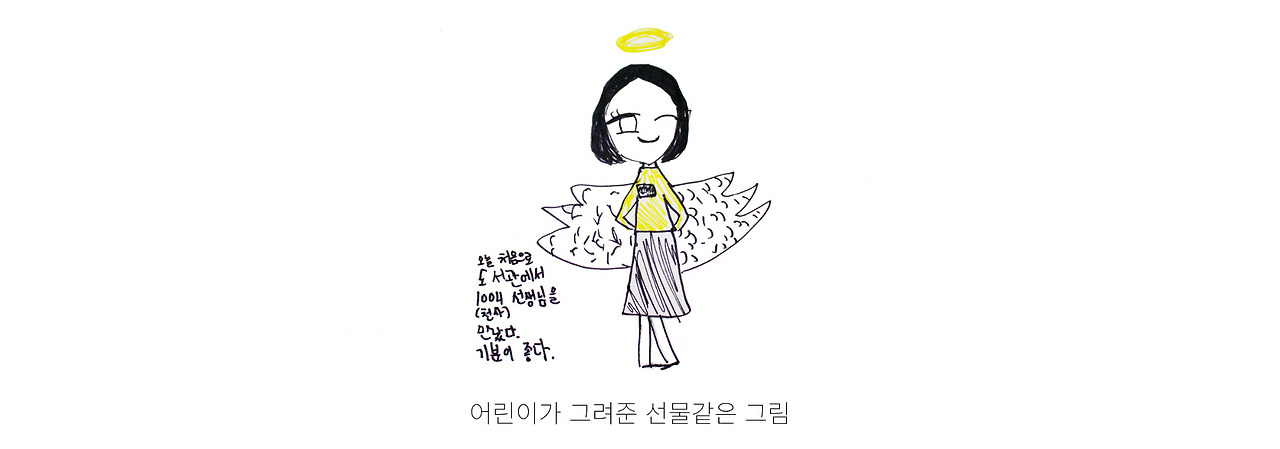 오늘 처음으로
도서관에서
1004 선생님을
(천사)
만났다.
기분이 좋다.
어린이가 그려준 선물같은 그림